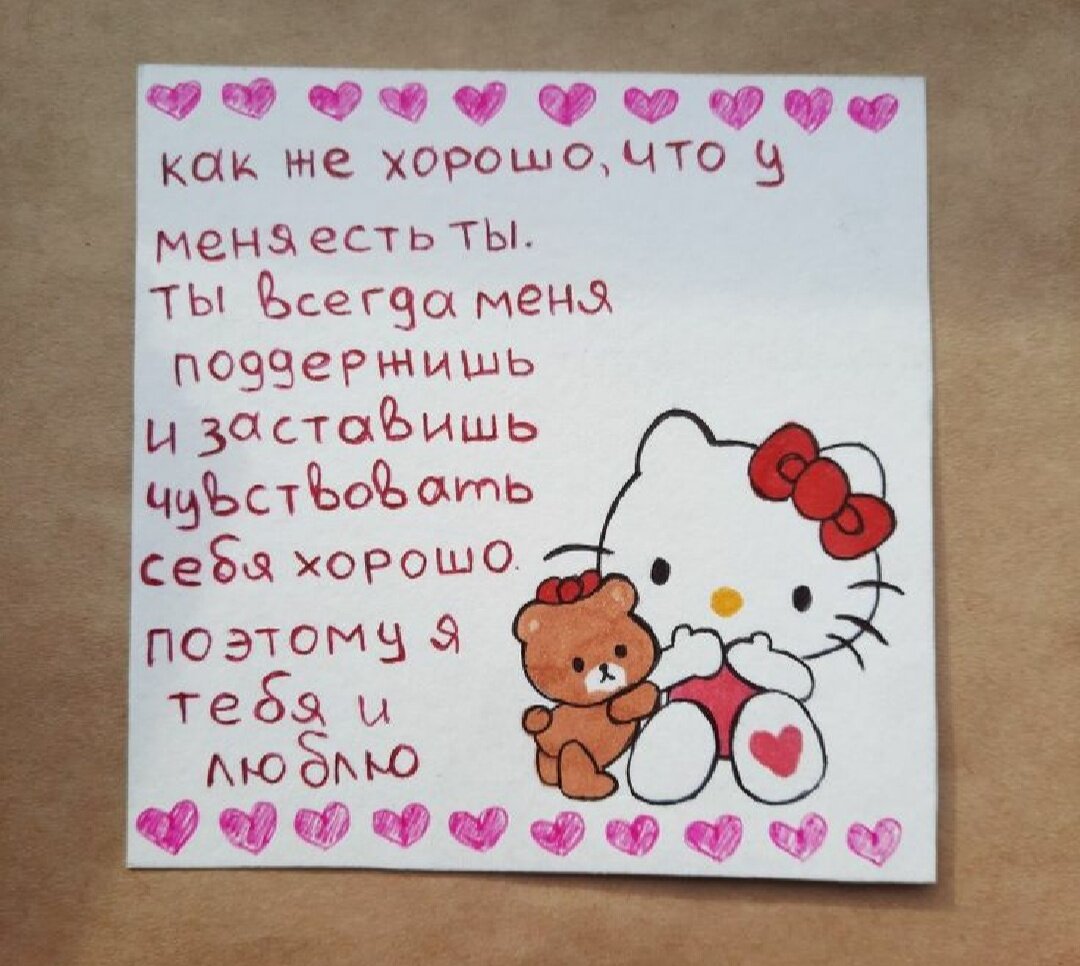 как же хорошо, что у
меня есть ты.
ты всегда меня
поддержишь
и заставишь
чувствовать
себя хорошо.
поэтому я
тебя и
люблю